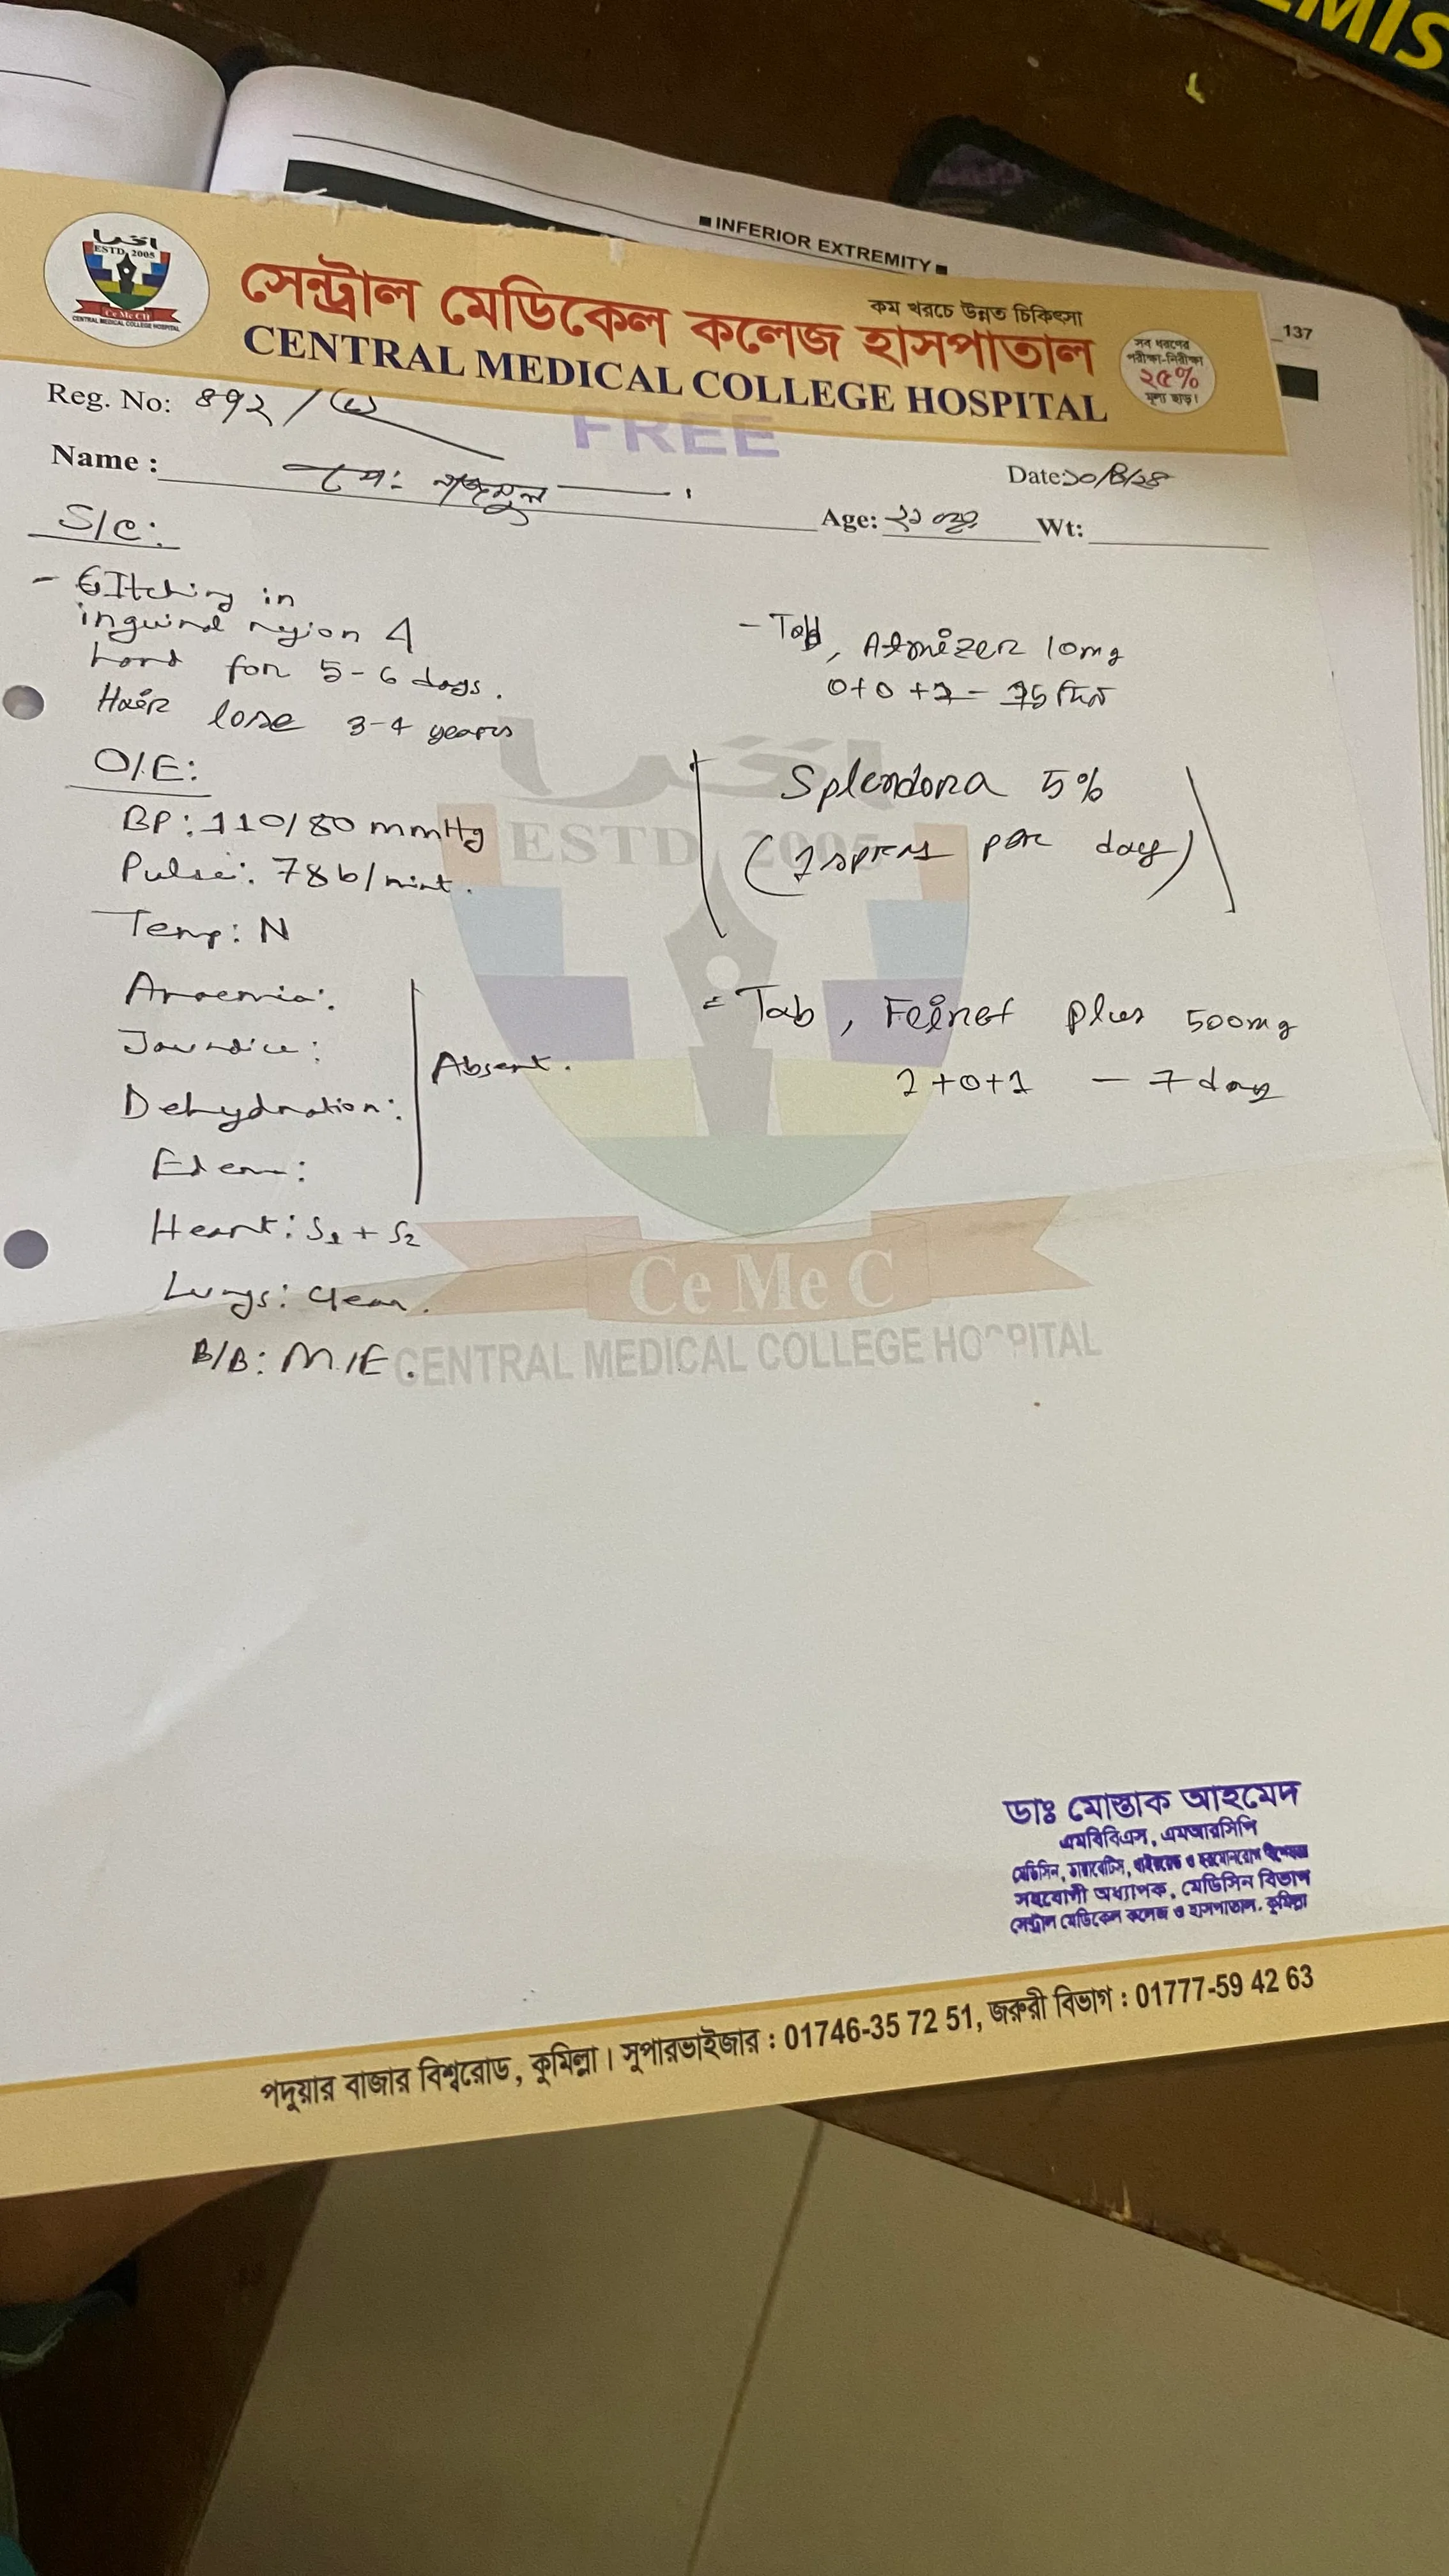 EMIS
INFERIOR EXTREMITY
137
ESTD. 2005
CeMeCH
CENTRAL MEDICAL COLLEGE HOSPITAL
সেন্ট্রাল মেডিকেল কলেজ হাসপাতাল
কম খরচে উন্নত চিকিৎসা
CENTRAL MEDICAL COLLEGE HOSPITAL
সব ধরণের
পরীক্ষা-নিরীক্ষা
২৫%
মূল্য ছাড়।
Reg. No: ৪৭২/
FREE
Name : মো: নাজমুল
Date:
Age: Wt:
S/C:
- Itching in
inguinal region &
hand for 5-6 days.
Hair lose 3-4 years
O/E:
BP: 110/80 mmHg
Pulse: 78b/mint.
Temp: N
Anaemia:
Jaundice:
Absent.
Dehydration:
Edema:
Heart: S1 + S2
Lungs: Clear.
B/B: M/E.
- Tab, 10mg
0+0+1 - 15 দিন
Splendora 5%
(1 per day)
= Tab, plus 500mg
1+0+1 - 7 day
ESTD, 2005
Ce Me C
CENTRAL MEDICAL COLLEGE HOSPITAL
ডাঃ মোস্তাক আহমেদ
এমবিবিএস, এমআরসিপি
মেডিসিন, ডায়াবেটিস, থাইরয়েড ও হরমোনরোগ বিশেষজ্ঞ
সহযোগী অধ্যাপক, মেডিসিন বিভাগ
সেন্ট্রাল মেডিকেল কলেজ ও হাসপাতাল, কুমিল্লা
পদুয়ার বাজার বিশ্বরোড, কুমিল্লা। সুপারভাইজার : 01746-35 72 51, জরুরী বিভাগ : 01777-59 42 63